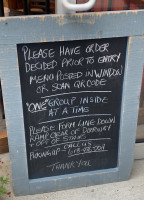 PLEASE HAVE ORDER
DECIDED PRIOR TO ENTRY
MENU POSTED IN WINDOW
OR SCAN QR CODE
"ONE" GROUP INSIDE
AT A TIME
PLEASE FORM LINE DOWN
RAMP CLEAR OF DOORWAY
+ OFF OF STAIRS
CALL US
THANK YOU